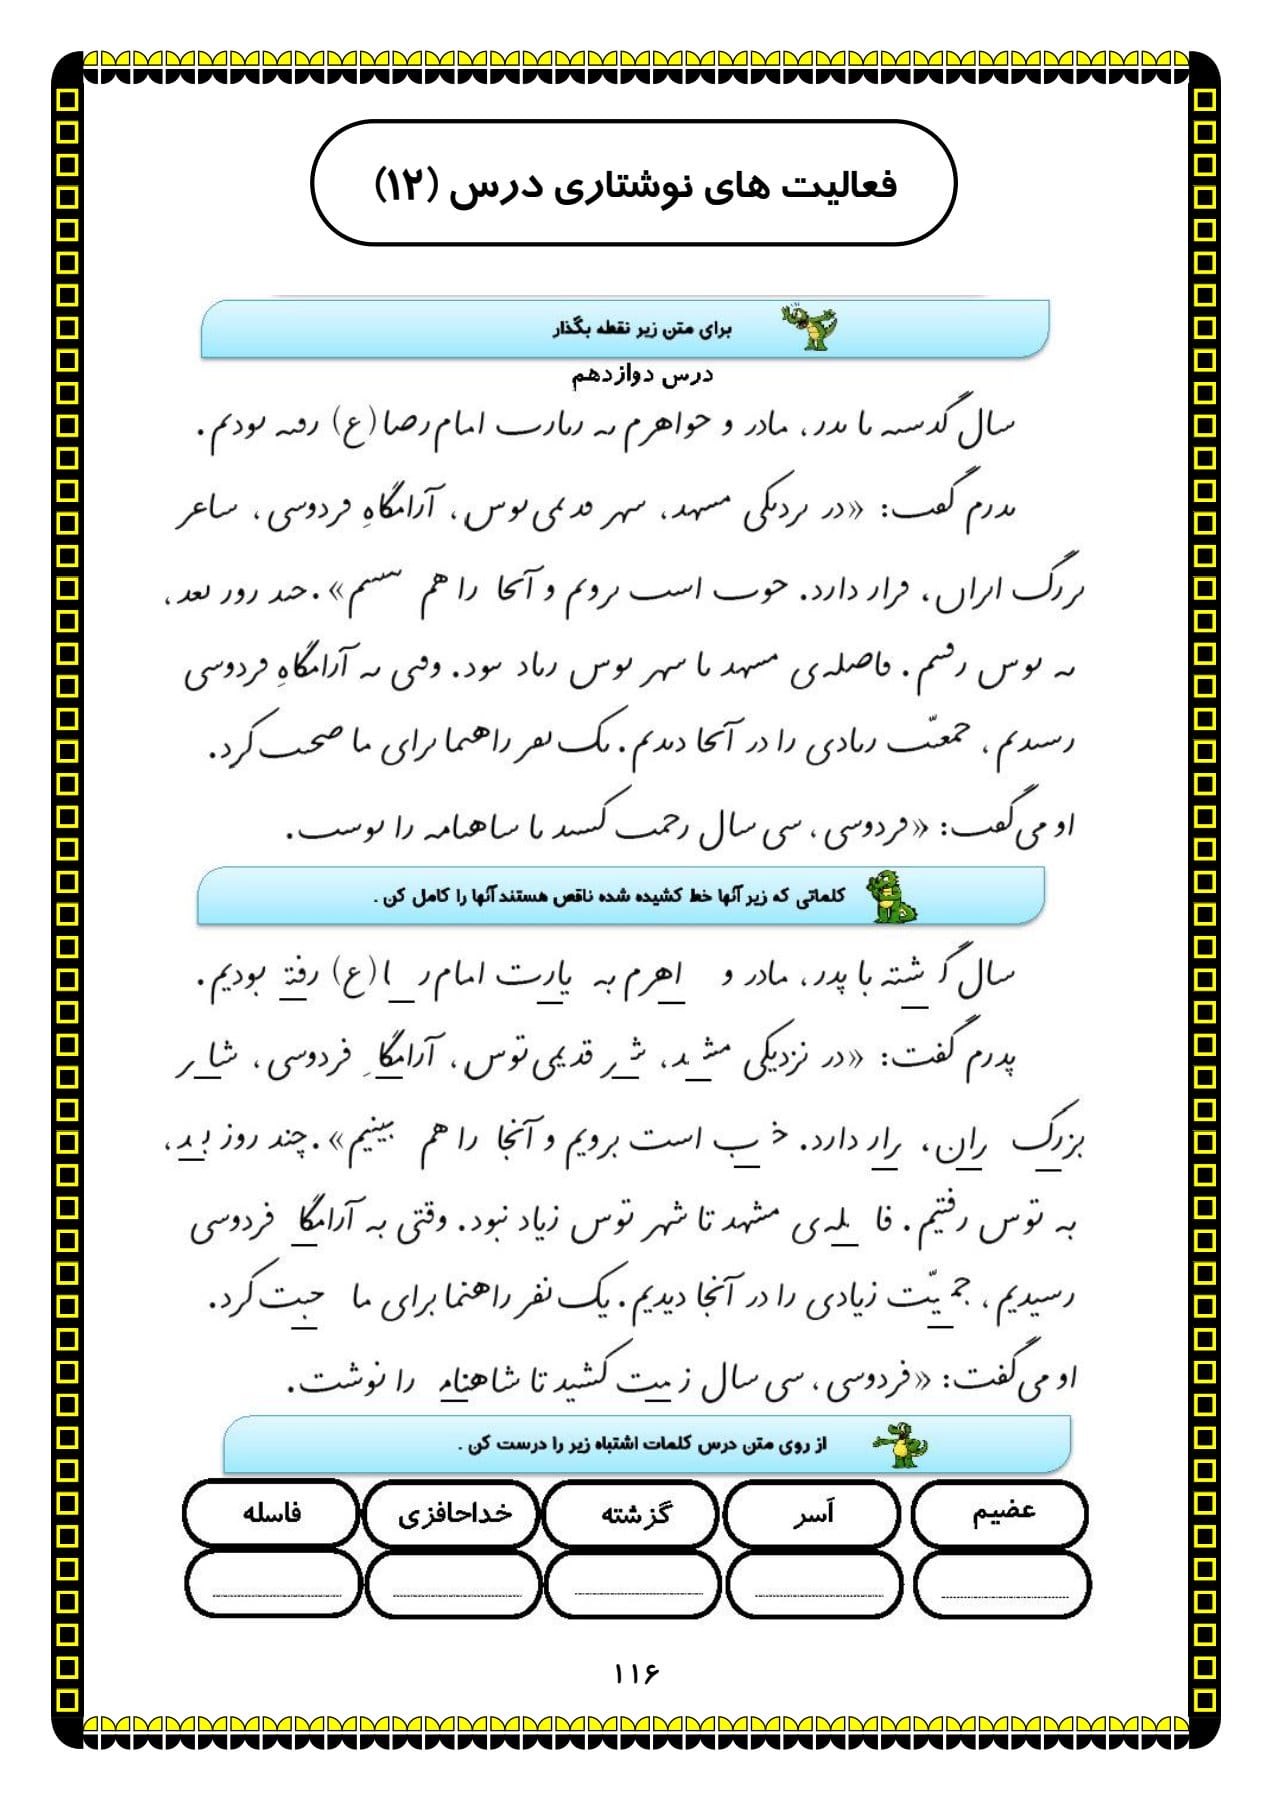 فعالیت های نوشتاری درس (۱۲)
برای متن زیر نقطه بگذار
درس دوازدهم
سال گدسٮه ٮا ٮدر، مادر و حواهرم ٮه رٮارٮ امام رصا(ع) رڡٮه ٮودٮم.
ٮدرم گڡٮ: «در ٮردٮکی مسهد، سهر ڡدٮمی ٮوس، آرامگاهِ ڡردوسی، ساعر
ٮررگ اٮراں، ڡرار دارد. حوٮ اسٮ ٮروٮم و آٮحا را هم ٮٮٮٮم». حٮد رور ٮعد،
ٮه ٮوس رڡٮٮم. ڡاصله‌ی مسهد ٮا سهر ٮوس رٮاد ٮٮود. وڡٮی ٮه آرامگاهِ ڡردوسی
رسٮدٮم، حمعٮّٮ رٮادی را در آٮحا دٮدٮم. ٮک ٮڡر راهٮما ٮرای ما صحٮٮ کرد.
او می‌گڡٮ: «ڡردوسی، سی سال رحمٮ کسٮد ٮا ساهٮامه را ٮوسٮ.
کلماتی که زیر آنها خط کشیده شده ناقص هستند آنها را کامل کن .
سال گ شته با پدر، مادر و اهرم به یارت امام ر ا(ع) رفتـ بودیم.
پدرم گفت: «در نزدیکی مشـ د، شـ ر قدیمی توس، آرامگا ِ فردوسی، شا ر
بزرگ ران، رار دارد. خ ب است برویم و آنجا را هم ببینیم». چند روز بـ د،
به توس رفتیم. فا له‌ی مشهد تا شهر توس زیاد نبود. وقتی به آرامگا فردوسی
رسیدیم، جمـ یّت زیادی را در آنجا دیدیم. یک نفر راهنما برای ما حبت کرد.
او می‌گفت: «فردوسی، سی سال ز مت کشید تا شاهنامـ را نوشت.
از روی متن درس کلمات اشتباه زیر را درست کن .
عضیم اَسر گزشته خداحافزی فاسله
۱۱۶